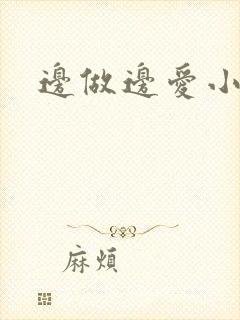 邊做邊愛小
麻煩